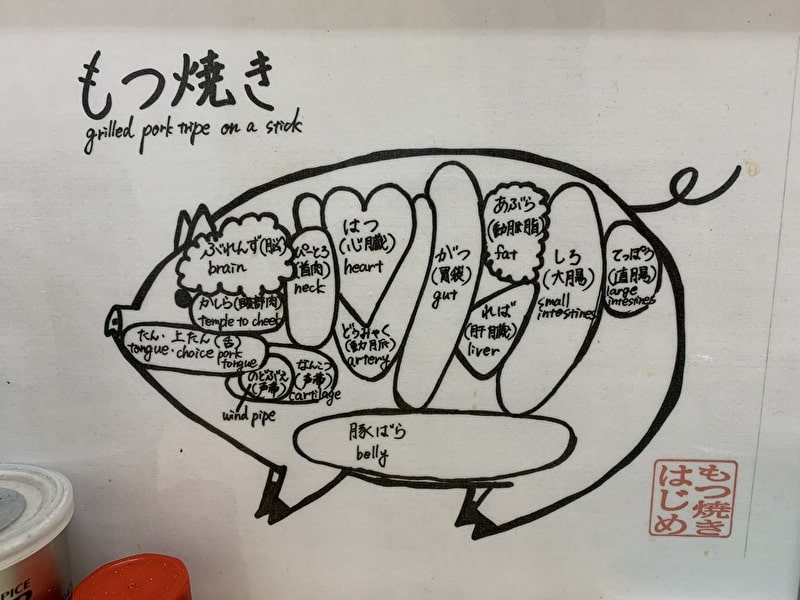 もつ焼き
grilled pork tripe on a stick
ぶれんず(脳)
brain
かしら(頭部肉)
temple to cheek
たん・上たん(舌)
tongue・choice pork
tongue
のどぶえ
(声帯)
wind pipe
なんこつ
(声帯)
cartilage
ぴーとろ
(首肉)
neck
はつ
(心臓)
heart
どうみゃく
(動脈)
artery
がつ
(胃袋)
gut
あぶら
fat
れば
(肝臓)
liver
しろ
(大腸)
small
intestines
てっぽう
(直腸)
large
intestines
豚ばら
belly
もつ焼き
はじめ
PICE